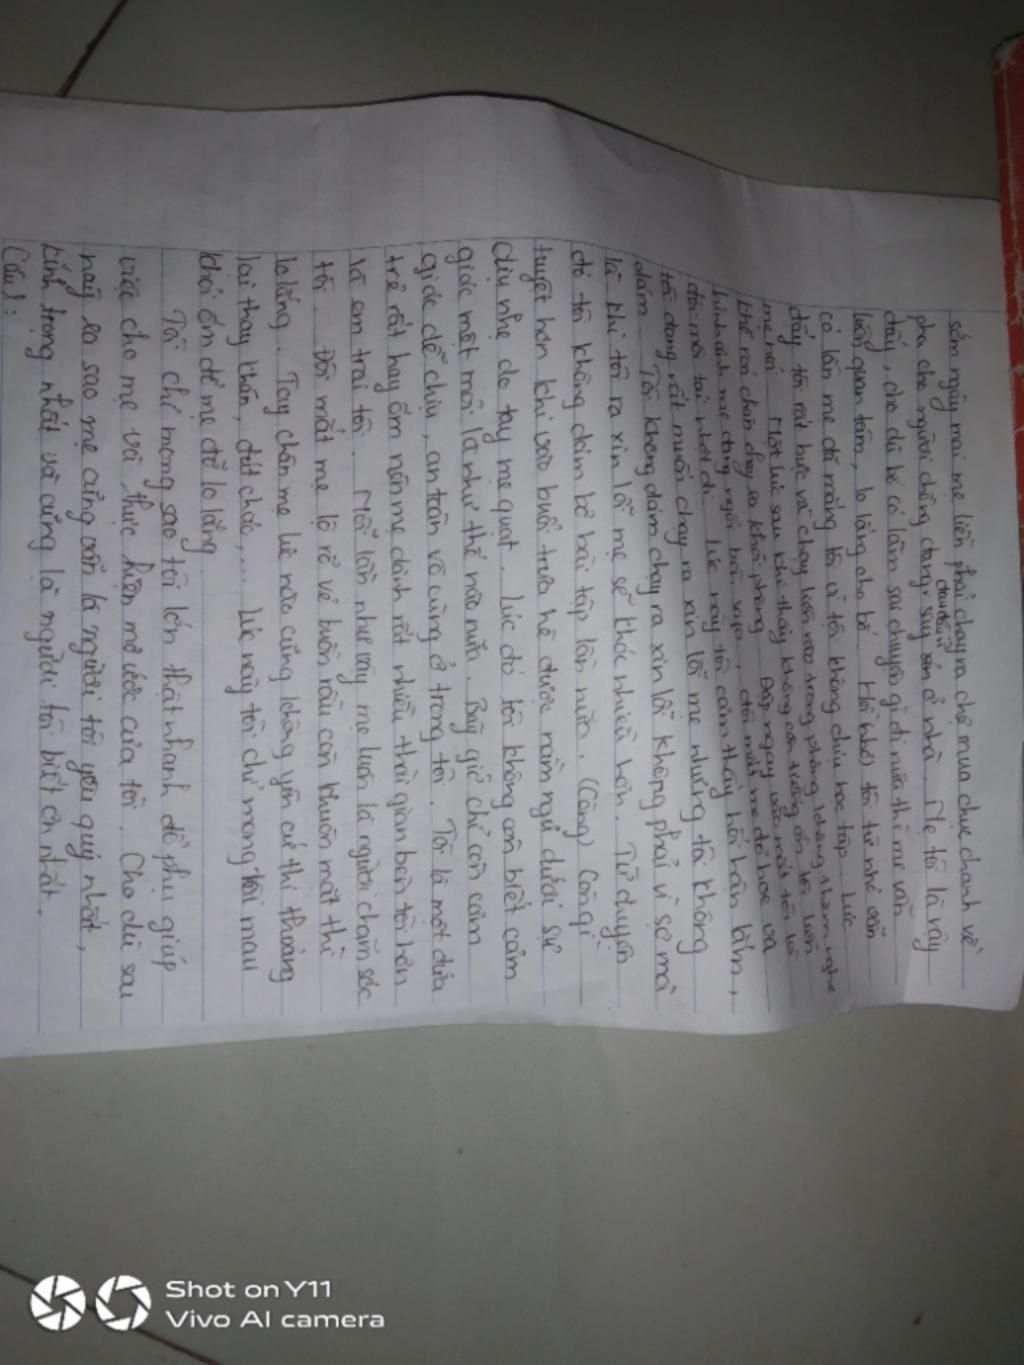 sớm ngày mai mẹ liền phải chạy ra chợ mua chục chanh về
pha cho người chồng đang say ở nhà. Mẹ tôi là vậy
đấy, cho dù bố có lầm sai chuyện gì đi nữa thì mẹ vẫn
luôn quan tâm, lo lắng cho bố. Hồi nhỏ tôi
có lần mẹ đã mắng tôi vì tôi không chịu học tập. Lúc
đấy tôi rất bực và chạy luôn vào trong phòng không thèm nghe
mẹ nói. Một lúc sau khi thấy không còn tiếng ồn tôi
khẽ ra khỏi phòng. Đập ngay vào mắt tôi là
hình ảnh mẹ đang ngồi đôi mắt mẹ đỏ hoe và
đôi môi tái nhợt đi. Lúc này tôi cảm thấy hối hận lắm,
tôi đang rất muốn chạy ra xin lỗi mẹ nhưng tôi không
dám. Tôi không dám chạy ra xin lỗi không phải vì sợ mà
là khi tôi ra xin lỗi mẹ sẽ khóc nhiều hơn. Từ chuyện
đó tôi không dám bỏ bài tập lần nữa. (Cũng) Còn gì
tuyệt hơn khi vào buổi trưa hè được nằm ngủ dưới sự
dịu nhẹ do tay mẹ quạt. Lúc đó tôi không còn biết cảm
giác mệt mỏi là như thế nào nữa. Bây giờ chỉ còn cảm
giác dễ chịu, an toàn vô cùng ở trong tôi. Tôi là một đứa
trẻ rất hay ốm nên mẹ dành rất nhiều thời gian bên tôi hơn
là em trai tôi. Mỗi lần như vậy mẹ luôn là người chăm sóc
tôi. Đôi mắt mẹ lộ rõ vẻ buồn rầu còn khuôn mặt thì
lo lắng. Tay chân mẹ lúc nào cũng không yên cứ thi thoảng
lại thay khăn, đút cháo,... Lúc này tôi chỉ mong tôi mau
khỏi ốm để mẹ đỡ lo lắng
Tôi chỉ mong sao tôi lớn thật nhanh để phụ giúp
việc cho mẹ và thực hiện mơ ước của tôi. Cho dù sau
này ra sao mẹ cũng vẫn là người tôi yêu quý nhất,
kính trọng nhất và cũng là người tôi biết ơn nhất.
Câu 1:
Shot on Y11
Vivo AI camera